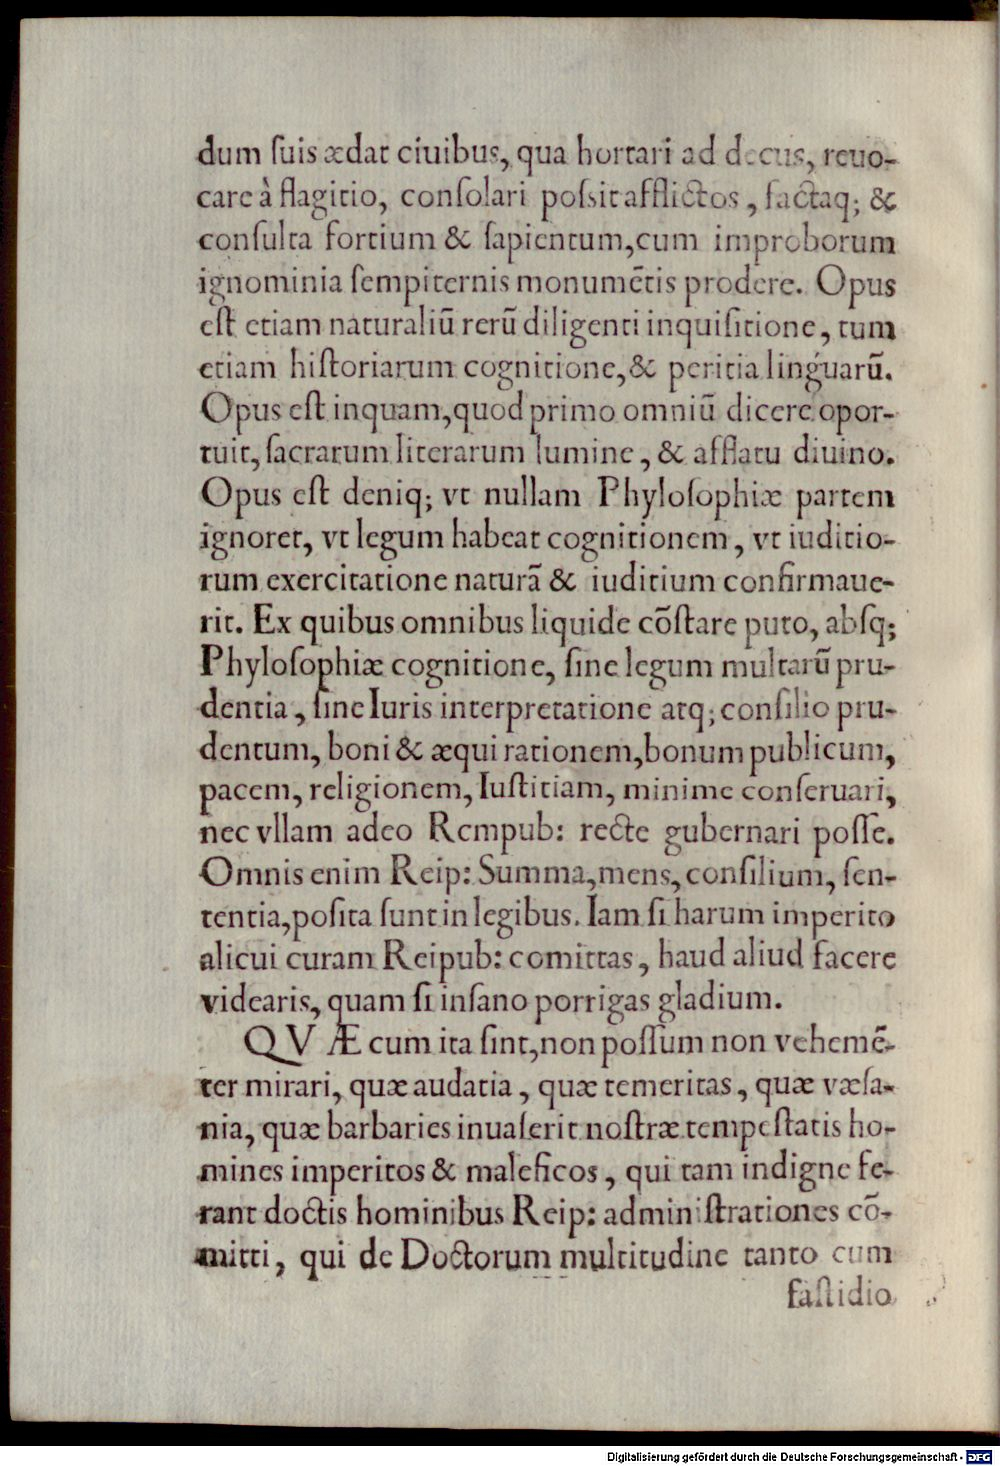 dum ſuis ædat ciuibus, qua hortari ad decus, reuo-
care à flagitio, conſolari poſsit afflictos, factaq; &
conſulta fortium & ſapientum, cum improborum
ignominia ſempiternis monumētis prodere. Opus
eſt etiam naturaliū rerū diligenti inquiſitione, tum
etiam hiſtoriarum cognitione, & peritia linguarū.
Opus eſt inquam, quod primo omniū dicere opor-
tuit, ſacrarum literarum lumine, & afflatu diuino.
Opus eſt deniq; vt nullam Phyloſophiæ partem
ignoret, vt legum habeat cognitionem, vt iuditio-
rum exercitatione naturā & iuditium confirmaue-
rit. Ex quibus omnibus liquide cōſtare puto, abſq;
Phyloſophiæ cognitione, ſine legum multarū pru-
dentia, ſine Iuris interpretatione atq; conſilio pru-
dentum, boni & æqui rationem, bonum publicum,
pacem, religionem, Iuſtitiam, minime conſeruari,
nec vllam adeo Rempub: recte gubernari poſſe.
Omnis enim Reip: Summa, mens, conſilium, ſen-
tentia, poſita ſunt in legibus. Iam ſi harum imperito
alicui curam Reipub: comittas, haud aliud facere
videaris, quam ſi inſano porrigas gladium.
QVÆ cum ita ſint, non poſſum non vehemē-
ter mirari, quæ audatia, quæ temeritas, quæ væſa-
nia, quæ barbaries inuaſerit noſtræ tempeſtatis ho-
mines imperitos & maleficos, qui tam indigne fe-
rant doctis hominibus Reip: adminiſtrationes cō-
mitti, qui de Doctorum multitudine tanto cum
faſtidio
Digitalisierung gefördert durch die Deutsche Forschungsgemeinschaft - DFG